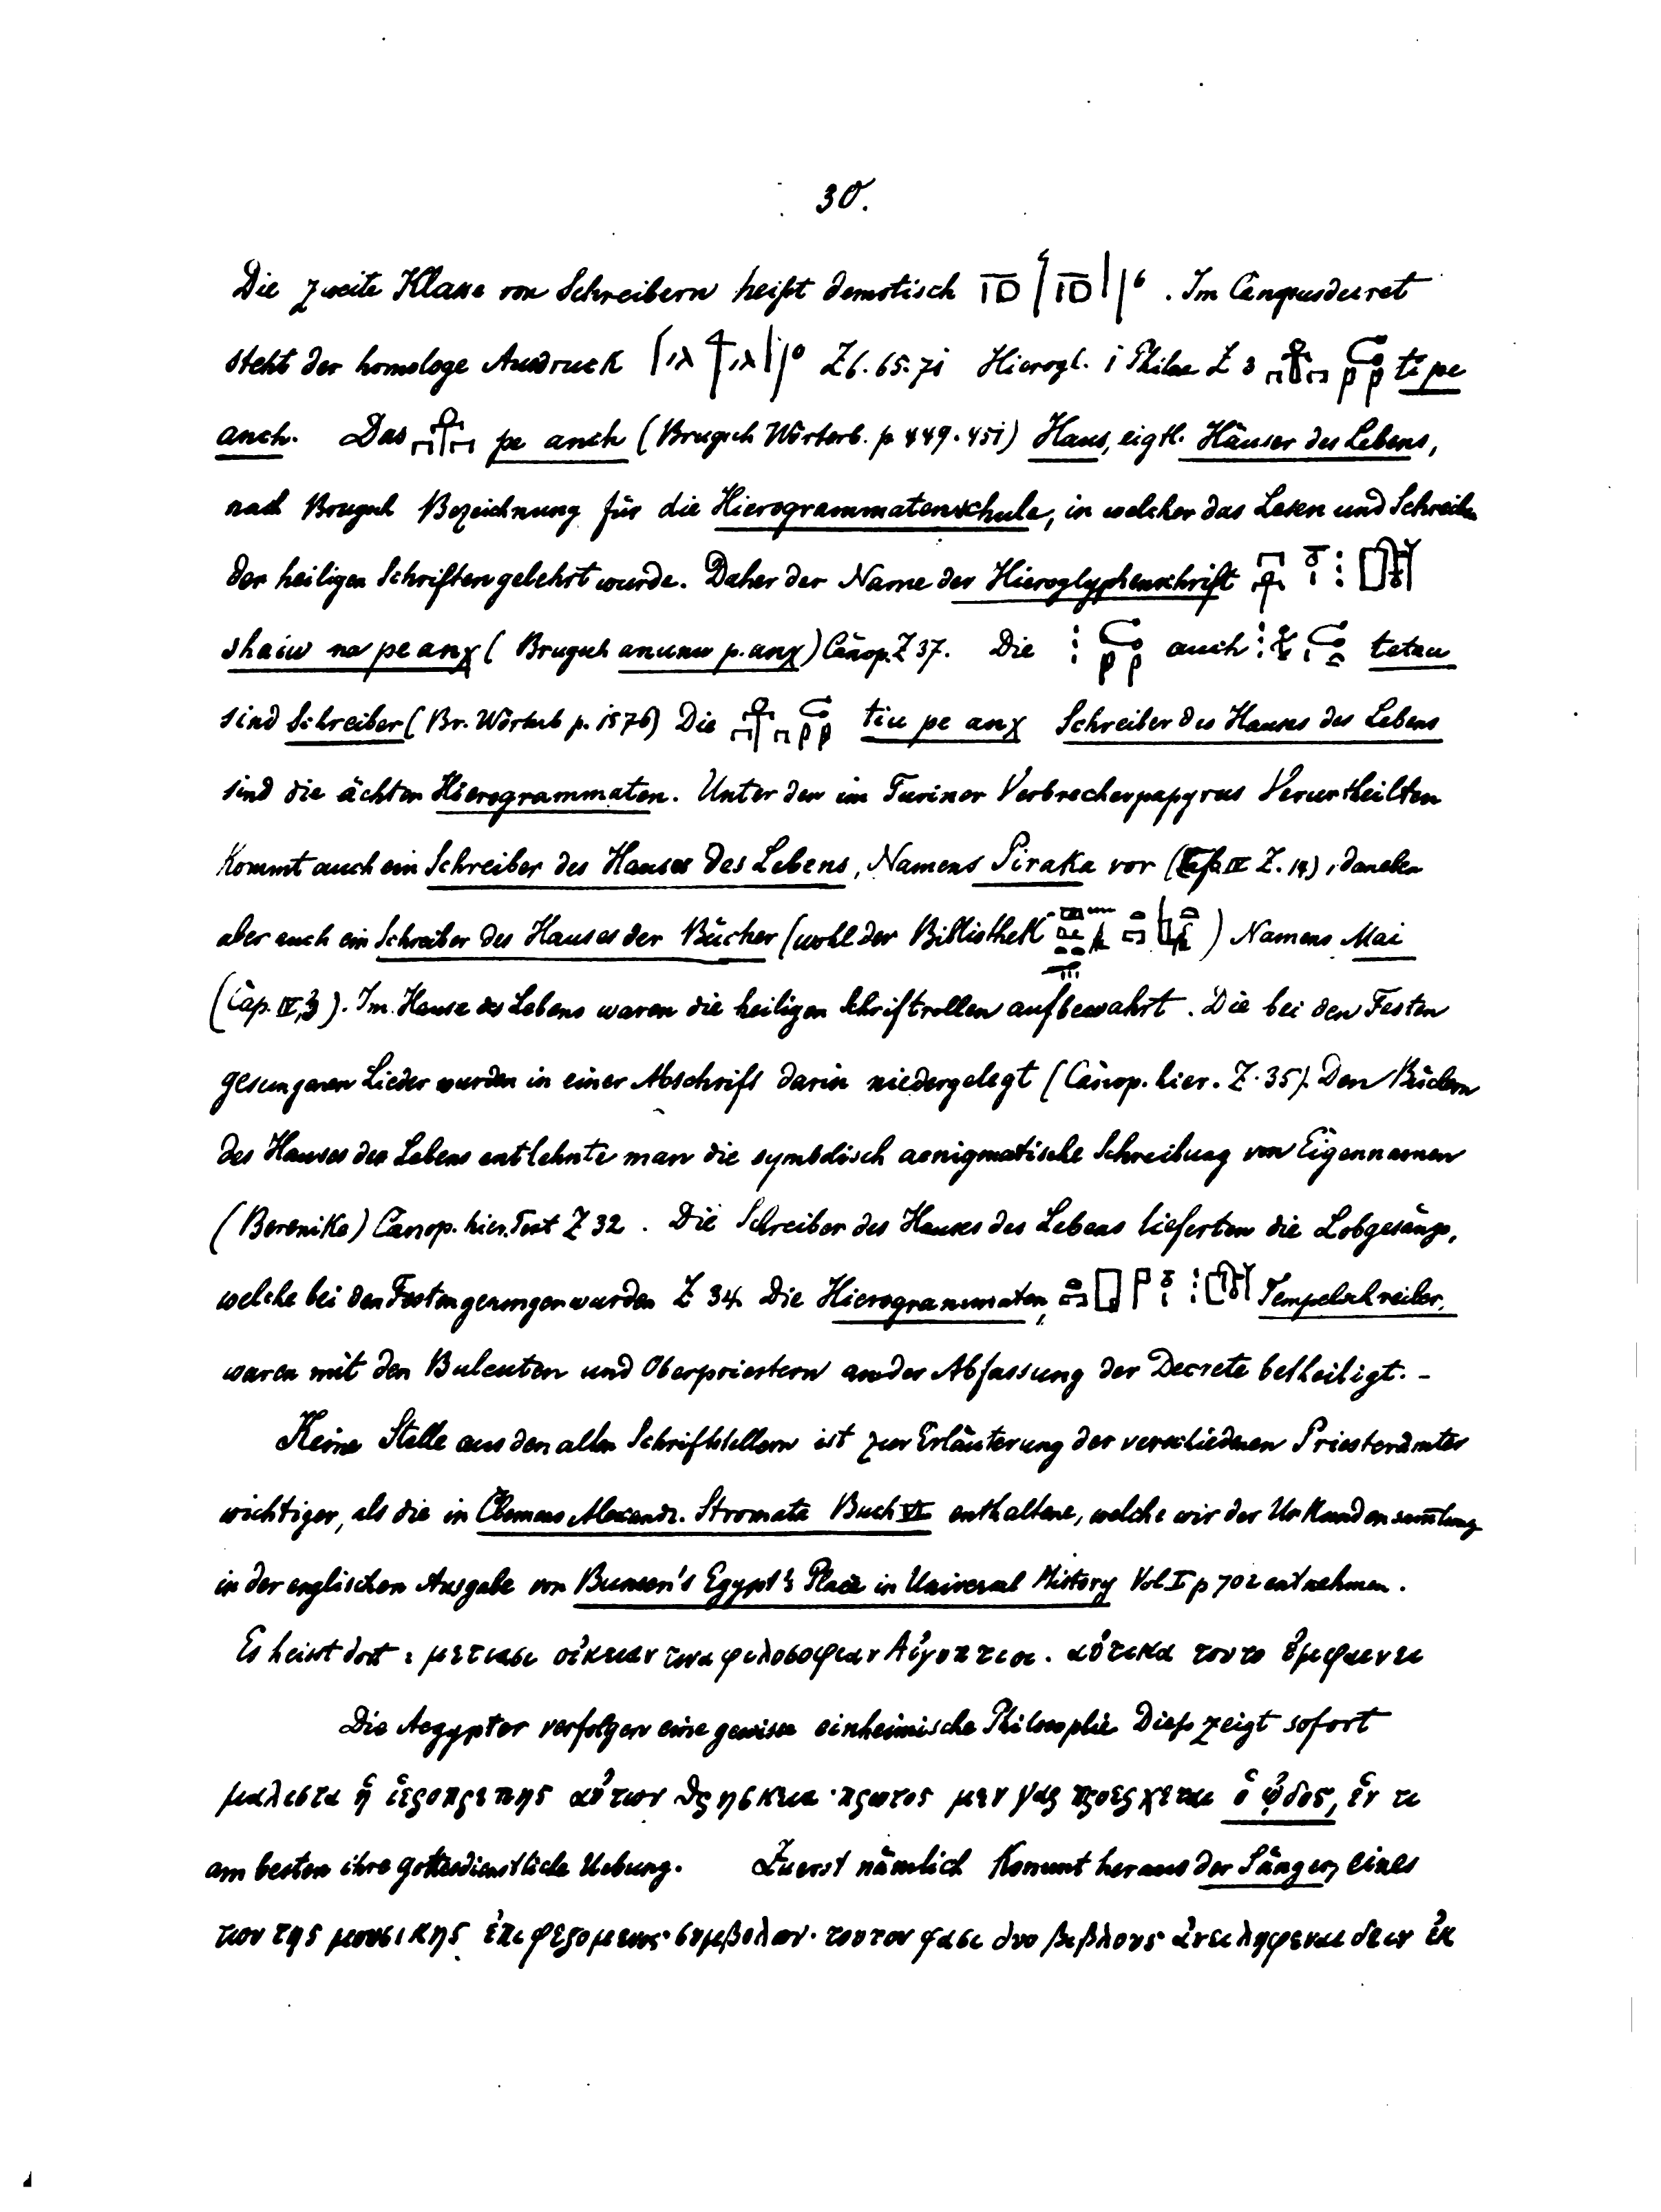 30.
Die zweite Klasse von Schreibern heißt demotisch . Im Canopusdecret
steht der homologe Ausdruck Z 6. 65. 71 Hierogl. i Philae Z 3 ti pe
anch. Das pe anch (Brugsch Wörterb. p 449. 451) Haus, eigtl. Häuser des Lebens,
nach Brugsch Bezeichnung für die Hierogrammatenschule, in welcher das Lesen und Schreiben
der heiligen Schriften gelehrt wurde. Daher der Name der Hieroglyphenschrift
shaiu na pe anχ (Brugsch anunu p. anχ) Canop. Z 37. Die auch tetau
sind Schreiber (Br. Wörterb p. 1576) Die tiu pe anχ Schreiber des Hauses des Lebens
sind die ächten Hierogrammaten. Unter den im Turiner Verbrecherpapyrus Verurtheilten
kommt auch ein Schreiber des Hauses des Lebens, Namens Piraka vor (IV Z. 14), daneben
aber auch ein Schreiber des Hauses der Bücher (wohl der Bibliothek ) Namens Mai
(Cap. IV,3). Im Hause des Lebens waren die heiligen Schriftrollen aufbewahrt. Die bei den Festen
gesungenen Lieder wurden in einer Abschrift darin niedergelegt (Canop. hier. Z. 35). Den Büchern
des Hauses des Lebens entlehnte man die symbolisch aenigmatische Schreibung von Eigennamen
(Berenike) Canop. hier. Text Z 32. Die Schreiber des Hauses des Lebens lieferten die Lobgesänge,
welche bei den Festen gesungen wurden Z 34. Die Hierogrammaten, Tempelschreiber,
waren mit den Buleuten und Oberpriestern an der Abfassung der Decrete betheiligt. -
Keine Stelle aus den alten Schriftstellern ist zur Erläuterung der verschiedenen Priesterämter
wichtiger, als die in Clemens Alexandr. Stromata Buch VI enthaltene, welche wir der Urkundensam̅lung
in der englischen Ausgabe von Bunsen's Egypt's Place in Universal History Vol I p 702 entnehmen.
Es heisst dort: μετιασι οἰκειαν τινα φιλοσοφιαν Αἰγυπτιοι. αὐτικα τουτο ἐμφαινει
Die Aegypter verfolgen eine gewisse einheimische Philosophie Dieß zeigt sofort
μαλιστα ἡ ἱεροπρεπης αὐτων θρησκεια. πρωτος μεν γαρ προερχεται ὁ ᾠδος, ἑν τι
am besten ihre gottesdienstliche Uebung. Zuerst nämlich kommt heraus der Sänger, eines
των της μουσικης ἐπιφερομενος συμβολων. τουτον φασι δυο βιβλους ἀνειληφεναι δειν ἐκ